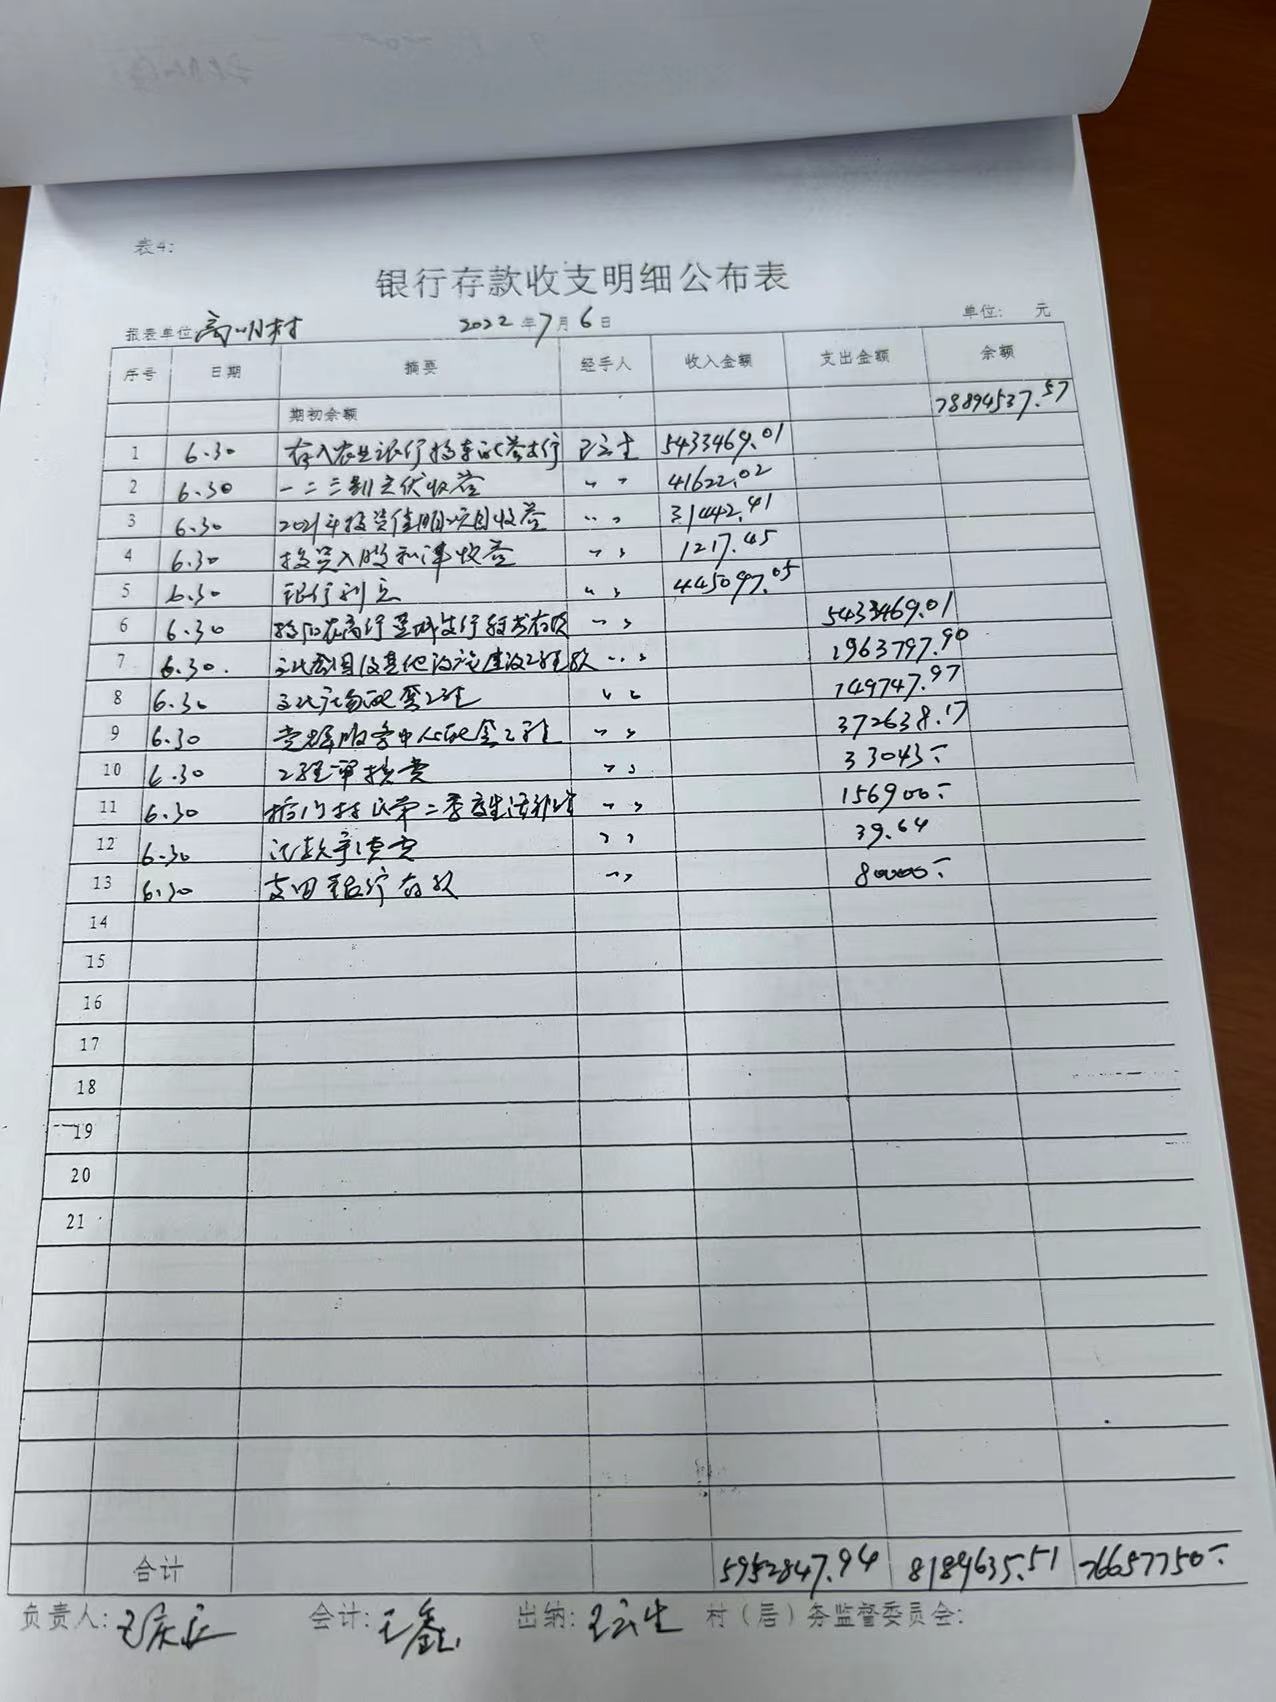 表4:
银行存款收支明细公布表
报表单位 高明村 2022年7月6日 单位: 元
序号 日期 摘要 经手人 收入金额 支出金额 余额
期初余额 78894537.57
1 6.30 存入农业银行 王云生 5433469.01
2 6.30 一二三期光伏收益 〃 41622.02
3 6.30 2021年投资 项目收益 〃 31442.41
4 6.30 投资入股和津收益 〃 1217.45
5 6.30 银行利息 〃 445097.05
6 6.30 〃 5433469.01
7 6.30. 及其他设施建设工程款 〃 1963797.90
8 6.30 文化广场配套工程 〃 149747.97
9 6.30 党群服务中心配套工程 〃 372638.17
10 6.30 工程审核费 〃 33043.-
11 6.30 村民第二季度生活补贴 〃 156900.-
12 6.30 汇款手续费 〃 39.64
13 6.30 支回银行存款 〃 80000.-
14
15
16
17
18
19
20
21
合计 5952847.94 8189635.51 76657750.-
负责人: 会计: 王鑫 出纳: 王云生 村(居)务监督委员会: